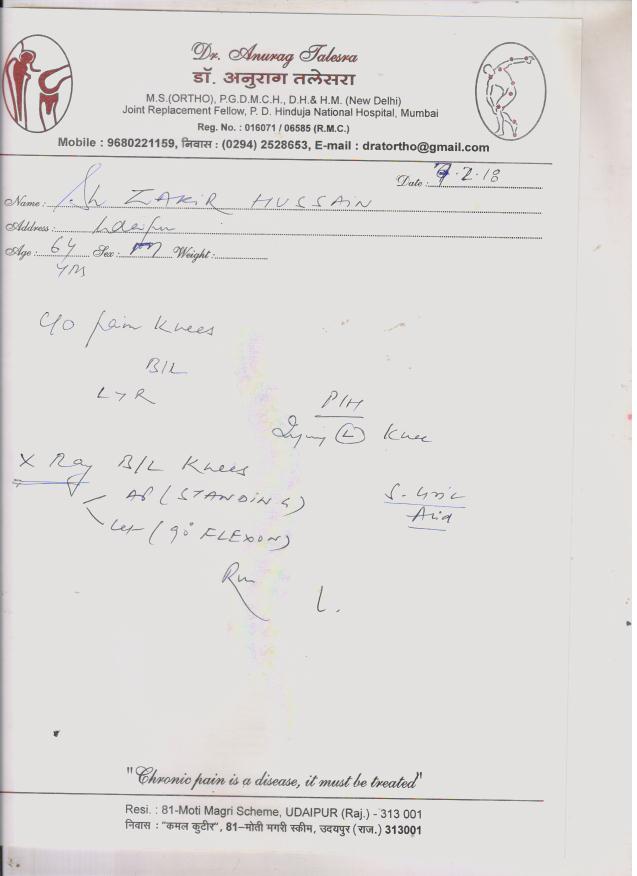 Dr. Anurag Talesra
डॉ. अनुराग तलेसरा
M.S.(ORTHO), P.G.D.M.C.H., D.H.& H.M. (New Delhi)
Joint Replacement Fellow, P. D. Hinduja National Hospital, Mumbai
Reg. No. : 016071 / 06585 (R.M.C.)
Mobile : 9680221159, निवास : (0294) 2528653, E-mail : dratortho@gmail.com
Date : 7.2.18
Name : Sh ZAKIR HUSSAIN
Address : Udaipur
Age : 64 Sex : m Weight :
yrs
C/O pain Knees
B/L
L > R
P/H
Injury (L) Knee
X Ray B/L Knees
AP (STANDING)
S. Uric
Acid
Lat (90° FLEXION)
"Chronic pain is a disease, it must be treated"
Resi. : 81-Moti Magri Scheme, UDAIPUR (Raj.) - 313 001
निवास : "कमल कुटीर", 81–मोती मगरी स्कीम, उदयपुर (राज.) 313001